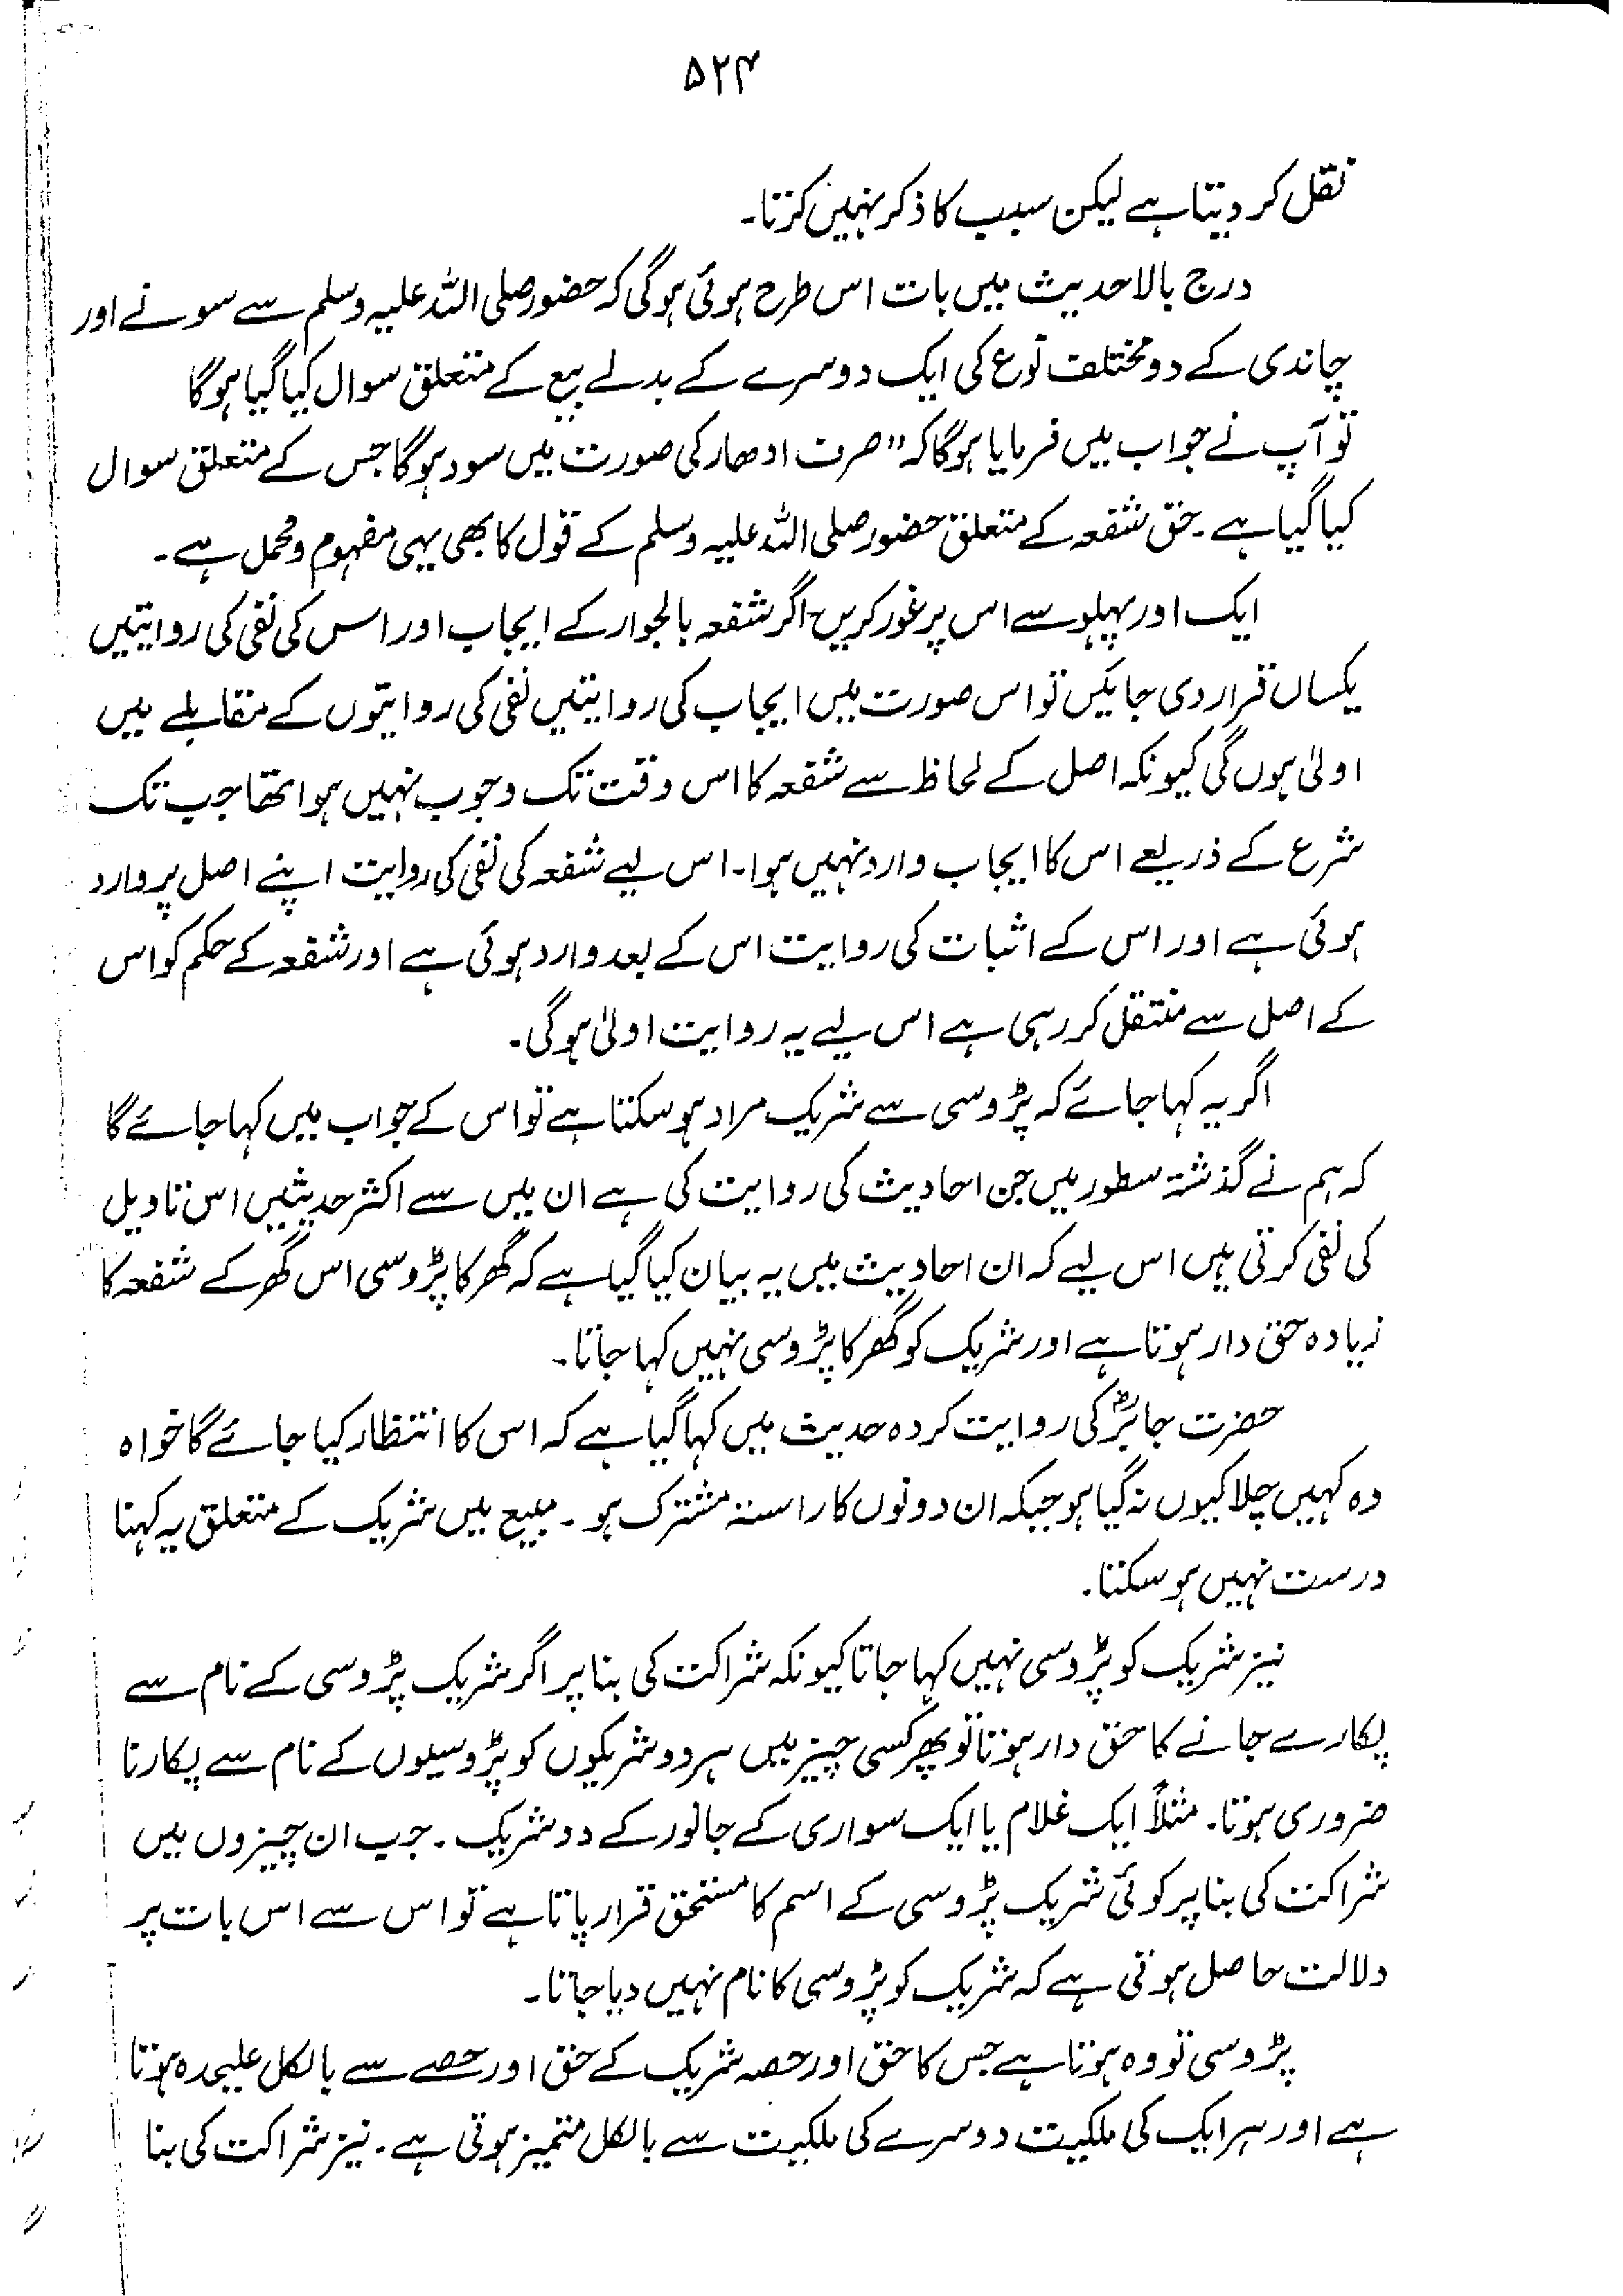 ۵۲۴
نقل کر دیتا ہے لیکن سبب کا ذکر نہیں کرتا۔
درج بالا حدیث میں بات اس طرح ہوئی ہوگی کہ حضور صلی اللہ علیہ وسلم سے سونے اور
چاندی کے دو مختلف نوع کی ایک دوسرے کے بدلے بیع کے متعلق سوال کیا گیا ہوگا
تو آپ نے جواب میں فرمایا ہوگا کہ "صرف ادھار کی صورت میں سود ہوگا جس کے متعلق سوال
کیا گیا ہے۔ حق شفعہ کے متعلق حضور صلی اللہ علیہ وسلم کے قول کا بھی یہی مفہوم و محمل ہے۔
ایک اور پہلو سے اس پر غور کریں۔ اگر شفعہ بالجوار کے ایجاب اور اس کی نفی کی روایتیں
یکساں قرار دی جائیں تو اس صورت میں ایجاب کی روایتیں نفی کی روایتوں کے مقابلے میں
اولیٰ ہوں گی کیونکہ اصل کے لحاظ سے شفعہ کا اس وقت تک وجوب نہیں ہوا تھا جب تک
شرع کے ذریعے اس کا ایجاب وارد نہیں ہوا۔ اس لیے شفعہ کی نفی کی روایت اپنے اصل پر وارد
ہوئی ہے اور اس کے اثبات کی روایت اس کے بعد وارد ہوئی ہے اور شفعہ کے حکم کو اس
کے اصل سے منتقل کر رہی ہے اس لیے یہ روایت اولیٰ ہوگی۔
اگر یہ کہا جائے کہ پڑوسی سے شریک مراد ہو سکتا ہے تو اس کے جواب میں کہا جائے گا
کہ ہم نے گذشتہ سطور میں جن احادیث کی روایت کی ہے ان میں سے اکثر حدیثیں اس تاویل
کی نفی کرتی ہیں اس لیے کہ ان احادیث میں یہ بیان کیا گیا ہے کہ گھر کا پڑوسی اس گھر کے شفعہ کا
زیادہ حق دار ہوتا ہے اور شریک کو گھر کا پڑوسی نہیں کہا جاتا۔
حضرت جابرؓ کی روایت کردہ حدیث میں کہا گیا ہے کہ اس کا انتظار کیا جائے گا خواہ
وہ کہیں چلا کیوں نہ گیا ہو جبکہ ان دونوں کا راستہ مشترک ہو۔ مبیع میں شریک کے متعلق یہ کہنا
درست نہیں ہو سکتا۔
نیز شریک کو پڑوسی نہیں کہا جاتا کیونکہ شراکت کی بنا پر اگر شریک پڑوسی کے نام سے
پکارے جانے کا حق دار ہوتا تو پھر کسی چیز میں ہر دو شریکوں کو پڑوسیوں کے نام سے پکارنا
ضروری ہوتا۔ مثلاً ایک غلام یا ایک سواری کے جانور کے دو شریک۔ جب ان چیزوں میں
شراکت کی بنا پر کوئی شریک پڑوسی کے اسم کا مستحق قرار پاتا ہے تو اس سے اس بات پر
دلالت حاصل ہوتی ہے کہ شریک کو پڑوسی کا نام نہیں دیا جاتا۔
پڑوسی تو وہ ہوتا ہے جس کا حق اور حصہ شریک کے حق اور حصے سے بالکل علیحدہ ہوتا
ہے اور ہر ایک کی ملکیت دوسرے کی ملکیت سے بالکل متمیز ہوتی ہے۔ نیز شراکت کی بنا